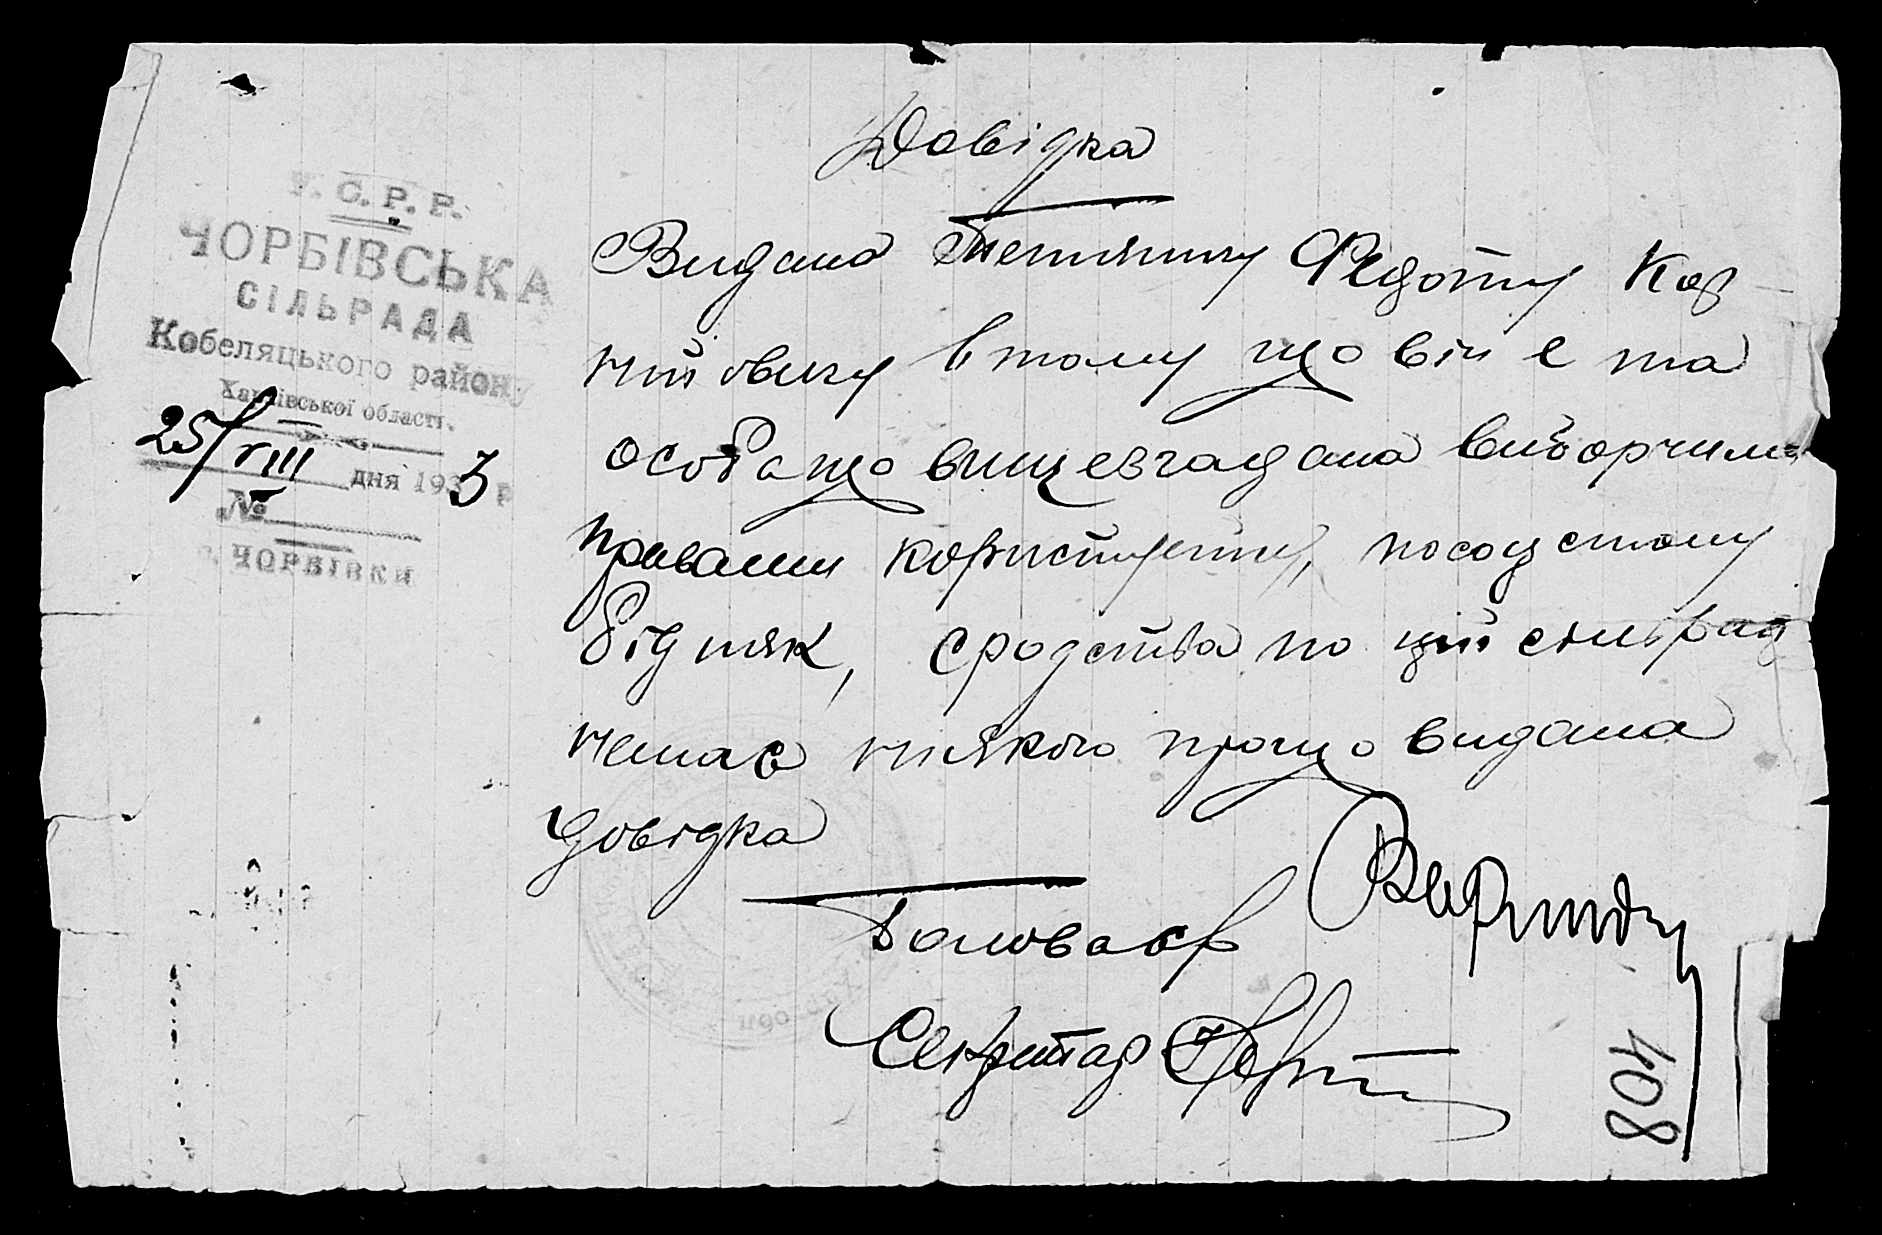 У. С. Р. Р.
ЧОРБІВСЬКА
СІЛЬРАДА
Кобеляцького району
Харківської області.
25/VIII дня 1933 р
№
с. ЧОРБІВКИ
Довідка
Видана Федоту Кор
нійовичу в тому що він є та
особа що вищезгадана виборчими
правами користуєтця, посоцстану
бідняк, сродства по цій сільраді
немає ніякого прощо видана
довідка
Голова с/р
Секретар
408